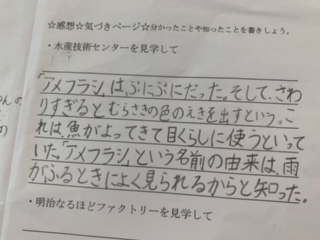 ☆感想☆気づきページ☆分かったことや知ったことを書きしょう。
・水産技術センターを見学して
「アメフラシ」は、ぷにぷにだった。そして、さわ
りすぎるとむらさきの色のえきを出すという。こ
れは、魚がよってきて目くらしに使うといって
いた。「アメフラシ」という名前の由来は、雨
がふるときによく見られるからと知った。
・明治なるほどファクトリーを見学して